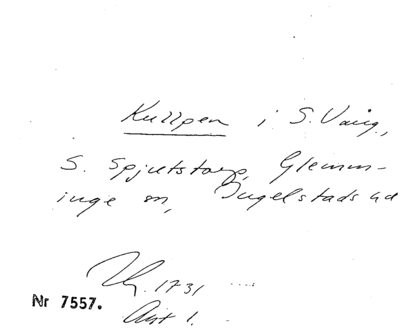 Kullpen i S. Vang,
S. Spjutstorp, Glemm-
inge sn, Ingelstads hd
1731
Nr 7557. Akt 1.